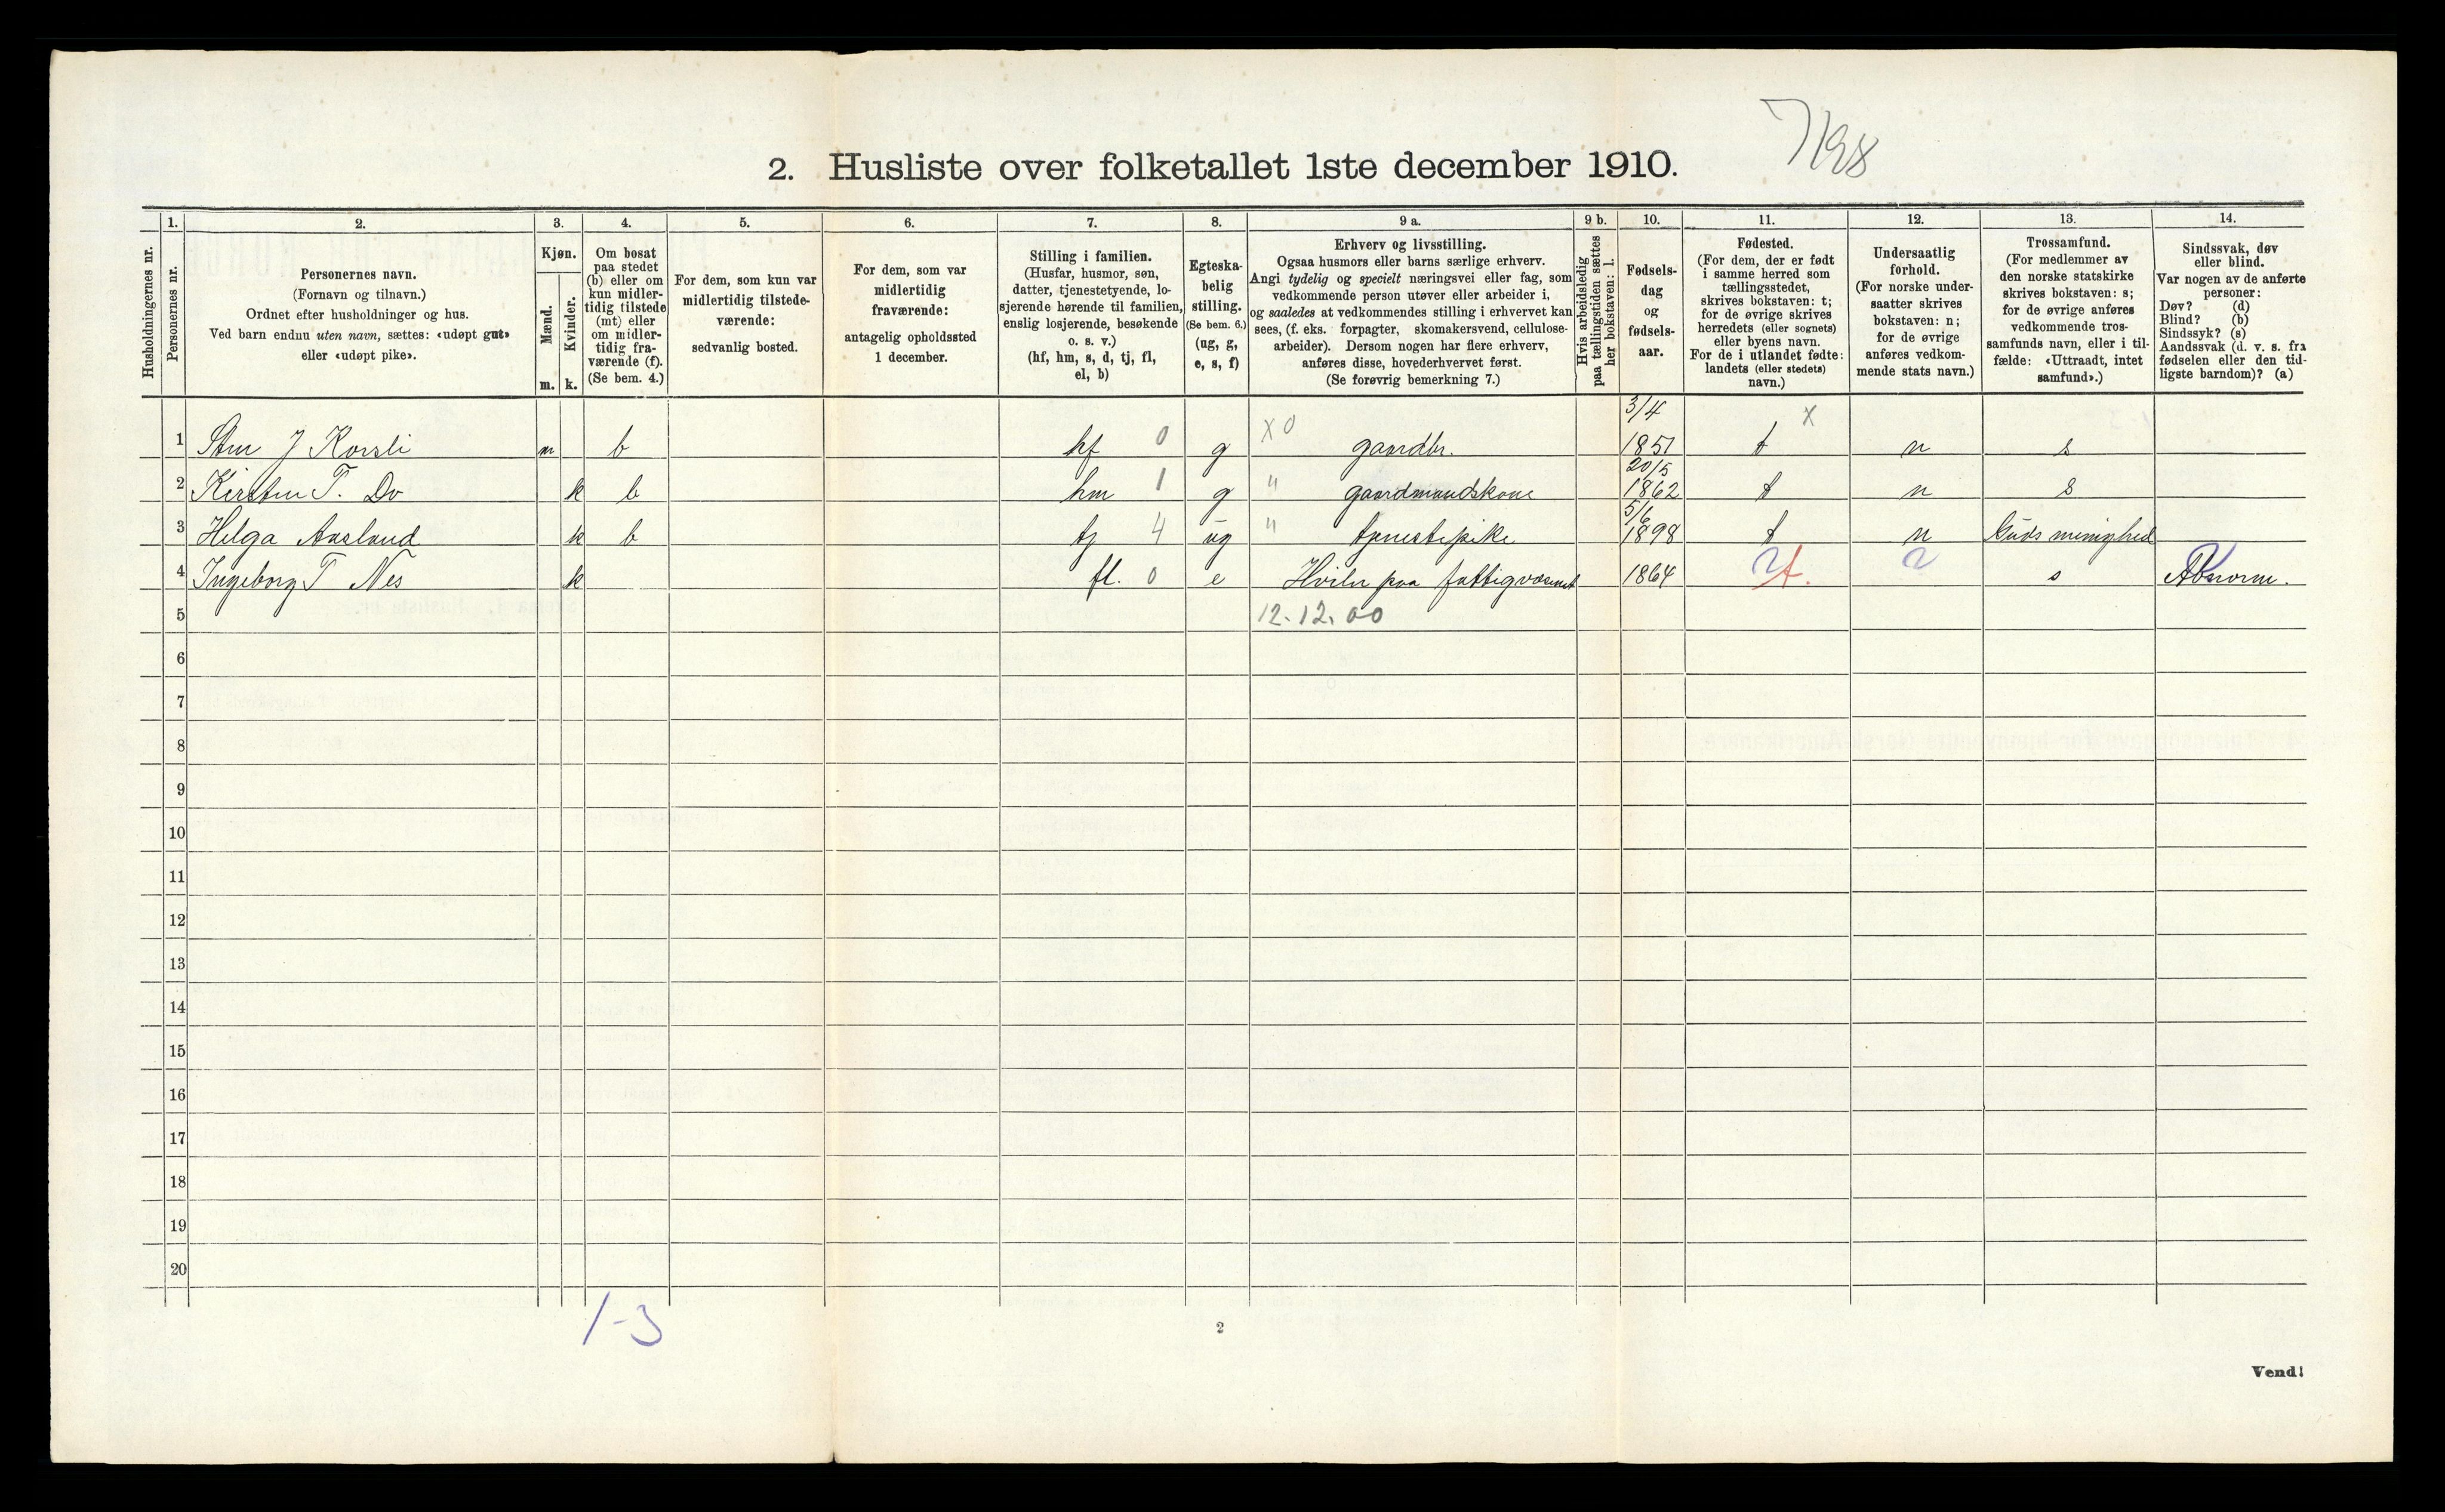 7198
2. Husliste over folketallet 1ste december 1910.
Husholdningernes nr.
1.
Personernes nr.
2.
Personernes navn.
(Fornavn og tilnavn.)
Ordnet efter husholdninger og hus.
Ved barn endnu uten navn, sættes: «udøpt gut»
eller «udøpt pike».
3.
Kjøn.
Mænd.
Kvinder.
m. k.
4.
Om bosat
paa stedet
(b) eller om
kun midler-
tidig tilstede
(mt) eller
om midler-
tidig fra-
værende (f).
(Se bem. 4.)
5.
For dem, som kun var
midlertidig tilstede-
værende:
sedvanlig bosted.
6.
For dem, som var
midlertidig
fraværende:
antagelig opholdssted
1 december.
7.
Stilling i familien.
(Husfar, husmor, søn,
datter, tjenestetyende, lo-
sjerende hørende til familien,
enslig losjerende, besøkende
o. s. v.)
(hf, hm, s, d, tj, fl,
el, b)
8.
Egteska-
belig
stilling.
(Se bem. 6.)
(ug, g,
e, s, f)
9 a.
Erhverv og livsstilling.
Ogsaa husmors eller barns særlige erhverv.
Angi tydelig og specielt næringsvei eller fag, som
vedkommende person utøver eller arbeider i,
og saaledes at vedkommendes stilling i erhvervet kan
sees, (f. eks. forpagter, skomakersvend, cellulose-
arbeider). Dersom nogen har flere erhverv,
anføres disse, hovederhvervet først.
(Se forøvrig bemerkning 7.)
9 b.
Hvis arbeidsledig
paa tællingstiden sættes
her bokstaven: l.
10.
Fødsels-
dag
og
fødsels-
aar.
11.
Fødested.
(For dem, der er født
i samme herred som
tællingsstedet,
skrives bokstaven: t;
for de øvrige skrives
herredets (eller sognets)
eller byens navn.
For de i utlandet fødte:
landets (eller stedets)
navn.)
12.
Undersaatlig
forhold.
(For norske under-
saatter skrives
bokstaven: n;
for de øvrige
anføres vedkom-
mende stats navn.)
13.
Trossamfund.
(For medlemmer av
den norske statskirke
skrives bokstaven: s;
for de øvrige anføres
vedkommende tros-
samfunds navn, eller i til-
fælde: «Uttraadt, intet
samfund».)
14.
Sindssvak, døv
eller blind.
Var nogen av de anførte
personer:
Døv? (d)
Blind? (b)
Sindssyk? (s)
Aandssvak (d. v. s. fra
fødselen eller den tid-
ligste barndom)? (a)
1 J Korsli m b hf 0 g X 0 gaardbr. 3/4 1851 t X n s
2 Kirsten T. Do k b hm 1 g " gaardmandskone 20/5 1862 t n s
3 Helga Aasland k b tj 4 ug " tjenestepike 5/6 1898 t n Guds menighed
4 Ingeborg T Nes k fl. 0 e Hviler paa fattigvæsenet 1864 t. s Abnorm.
5 12.12.00
6
7
8
9
10
11
12
13
14
15
16
17
18
19
20
1-3
2
Vend!